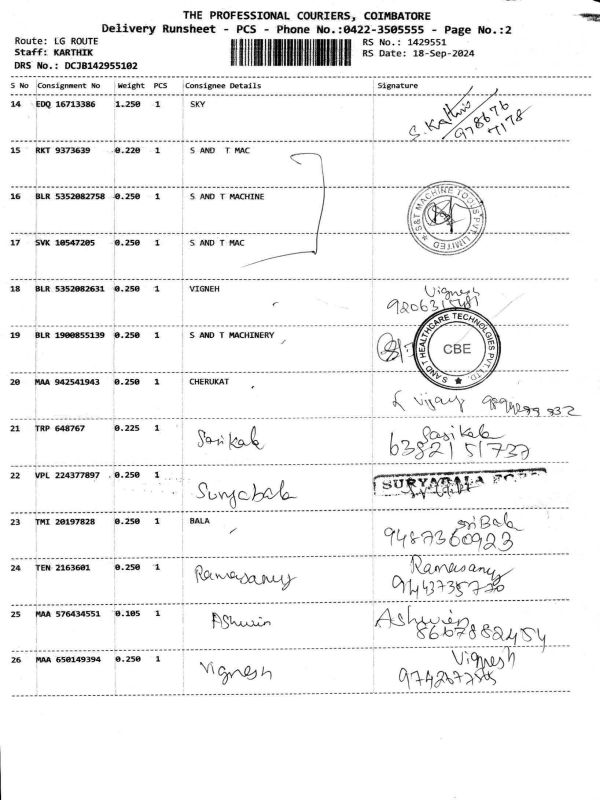 THE PROFESSIONAL COURIERS, COIMBATORE
Delivery Runsheet - PCS - Phone No.:0422-3505555 - Page No.:2
Route: LG ROUTE RS No.: 1429551
Staff: KARTHIK RS Date: 18-Sep-2024
DRS No.: DCJB142955102
S No Consignment No Weight PCS Consignee Details Signature
14 EDQ 16713386 1.250 1 SKY
S. Kathris
978676
7178
15 RKT 9373639 0.220 1 S AND T MAC
16 BLR 5352082758 0.250 1 S AND T MACHINE
S&T MACHINE TOOLS PVT. LIMITED
17 SVK 10547205 0.250 1 S AND T MAC
18 BLR 5352082631 0.250 1 VIGNEH Vignesh
19 BLR 1900855139 0.250 1 S AND T MACHINERY
S AND T HEALTHCARE TECHNOLOGIES PVT. LTD.
CBE
20 MAA 942541943 0.250 1 CHERUKAT
Vijay
21 TRP 648767 0.225 1 Sasikala Sasikala
6382151737
22 VPL 224377897 0.250 1 Suryabala SURYABALA
23 TMI 20197828 0.250 1 BALA Sri Bala
9487360923
24 TEN 2163601 0.250 1 Ramasamy Ramasamy
9443735770
25 MAA 576434551 0.105 1 Ashwin Ashwin
8667882454
26 MAA 650149394 0.250 1 Vignesh Vignesh